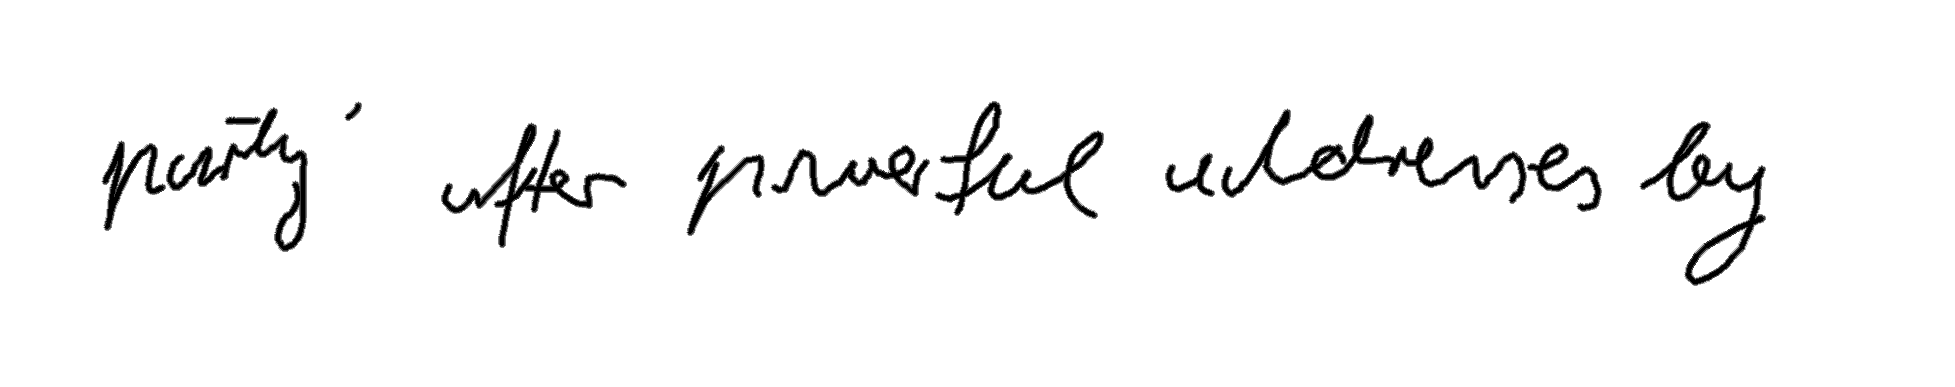 party' after powerful addresses by